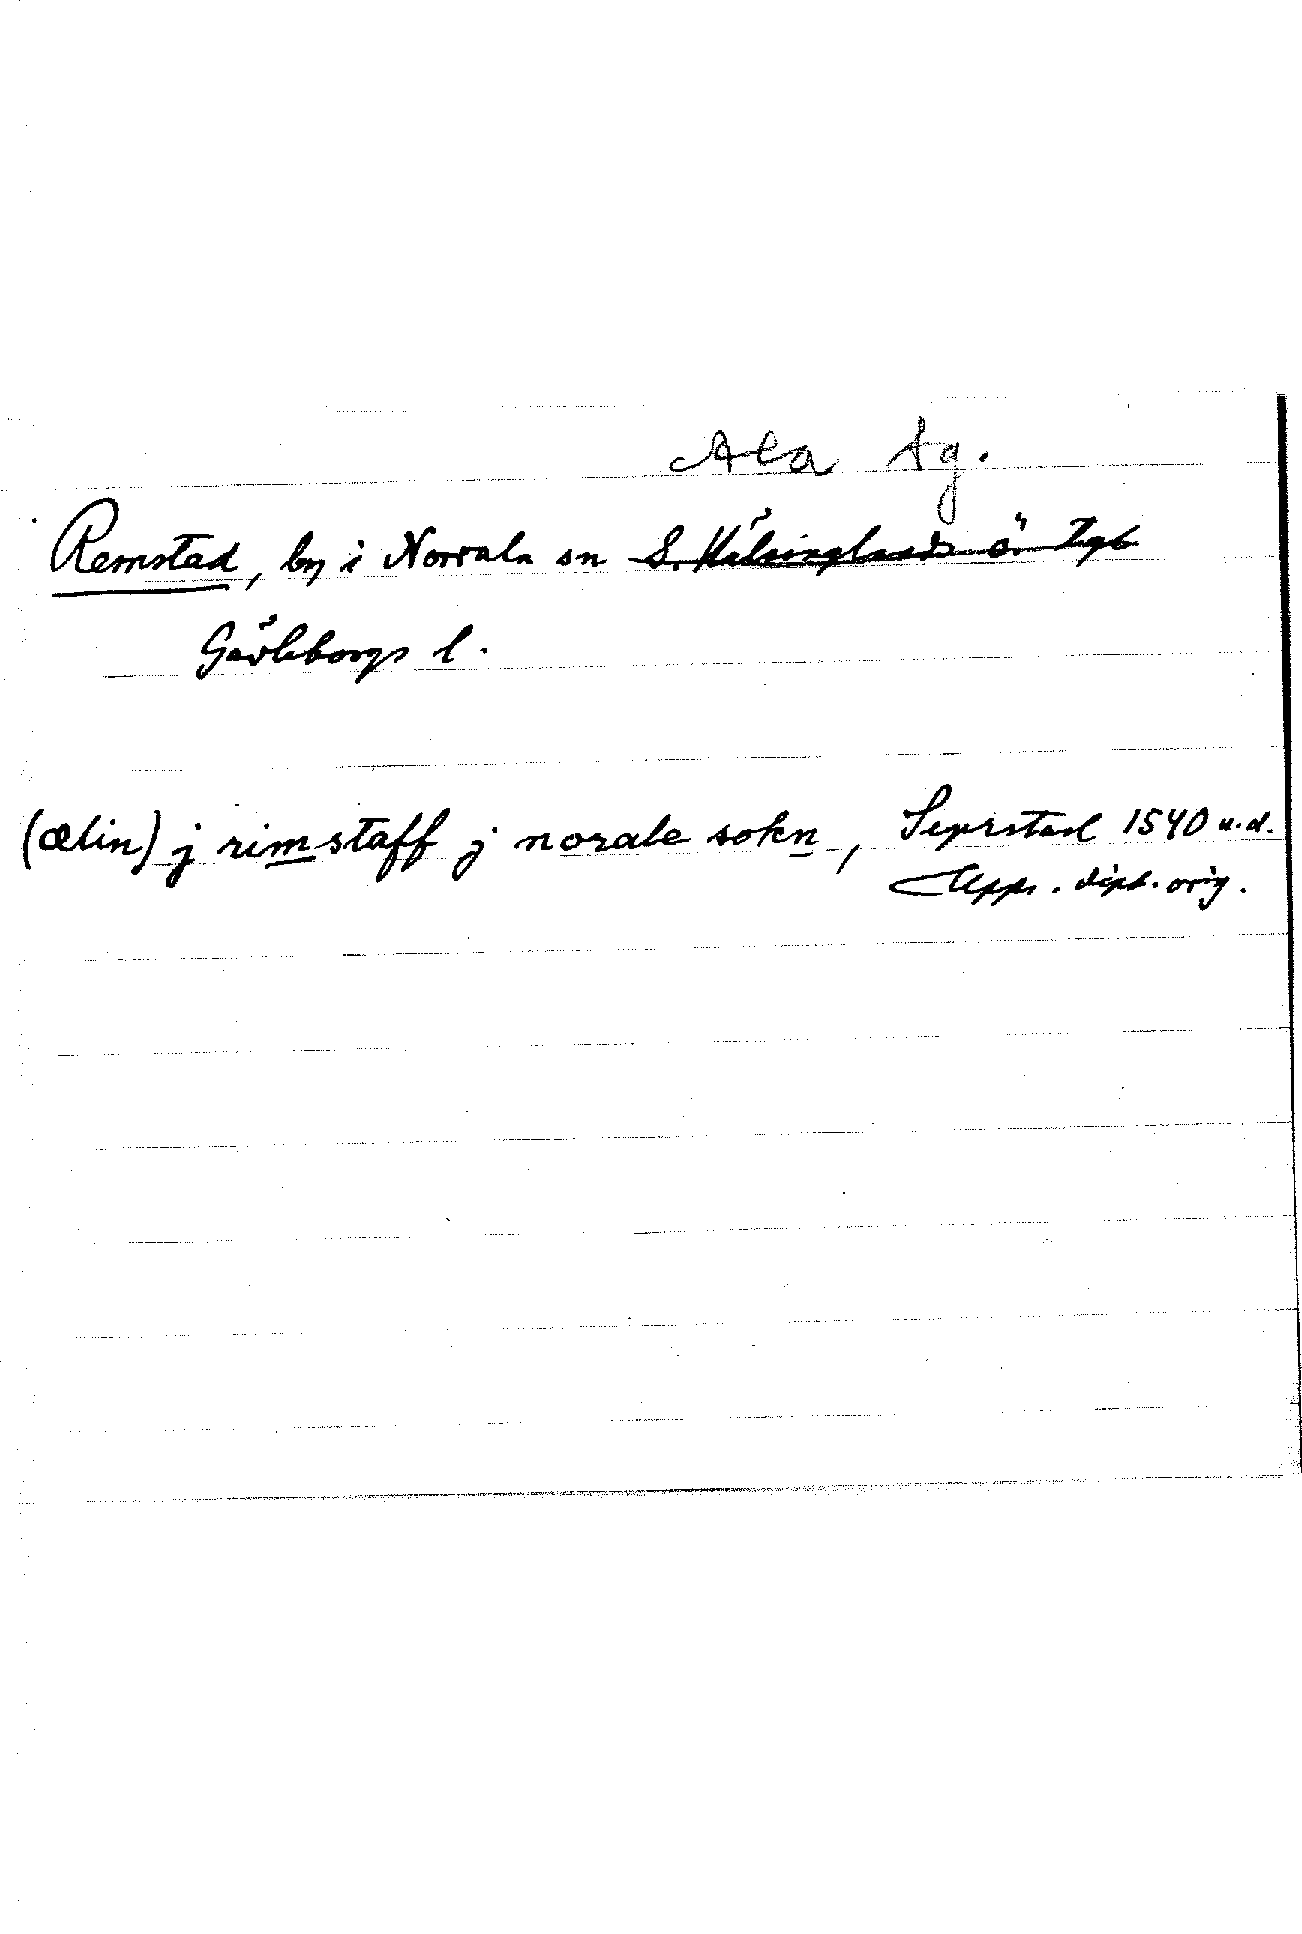 Ala tg.
Remstad, by i Norrala sn S. Hälsinglands ö. tgl
Gävleborgs l.
(ælin) j rimstaff j norale sokn, Segerstad 1540 u.d.
Upps. dipl. orig.